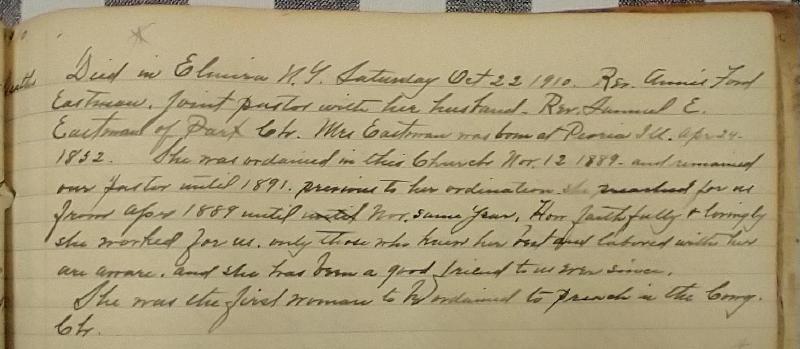 Died in Elmira N.Y. Saturday Oct 22 1910. Rev. Annis Ford
Deaths
Eastman, joint pastor with her husband - Rev. Samuel E.
Eastman of Park Ch. Mrs Eastman was born at Peoria Ill. Apr 24-
1852. She was ordained in this Church Nov. 12 1889 - and remained
our pastor until 1891. previous to her ordination she preached for us
from Apr 1889 until until Nov. same year. How faithfully & lovingly
she worked for us. only those who knew her best and labored with her
are aware. and she has been a good friend to us ever since.
She was the first woman to be ordained to preach in the Cong.
Ch.